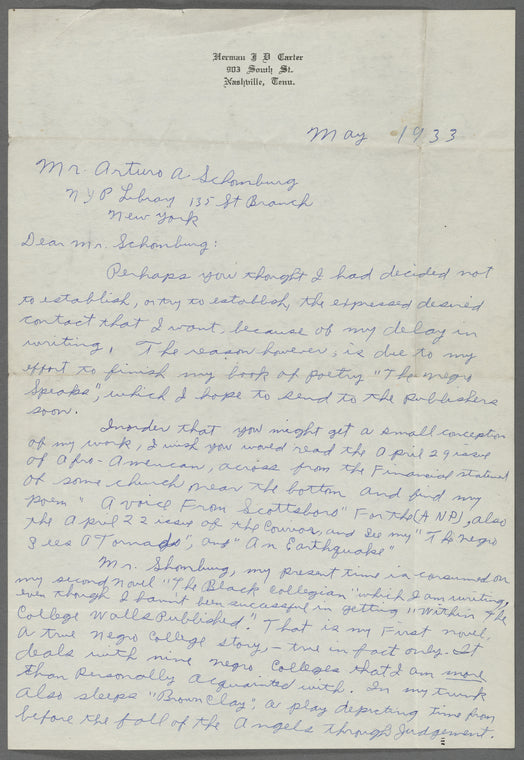 Herman J D Carter
903 South St.
Nashville, Tenn.
May 1933
Mr. Arturo A. Schomburg
N Y P Library 135 St Branch
New York
Dear Mr. Schomburg:
Perhaps you thought I had decided not
to establish, or try to establish, the expressed desired
contact that I want, because of my delay in
writing. The reason however, is due to my
effort to finish my book of poetry "The Negro
Speaks", which I hope to send to the publishers
soon.
Inorder that you might get a small conception
of my work, I wish you would read the April 29 issue
of Afro-American, across from the Financial statement
of some church near the bottom and find my
poem "A Voice From Scottsboro" For the (ANP), also
the April 22 issue of the Courier, and see my "The Negro
Sees A Tornado", and "An Earthquake"
Mr. Shomburg, my present time is consumed on
my second novel "The Black Collegian" which I am writing,
even though I havn't been successful in getting "Within The
College Walls Published". That is my First novel,
a true Negro College story, - true in fact only. It
deals with nine Negro Colleges that I am more
than personally acquainted with. In my trunk
also sleeps "Brown Clay", a play depicting time from
before the fall of the Angels through Judgement.